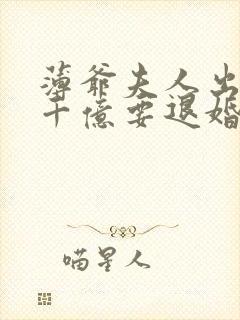 薄爷夫人出
十億要退婚
喵星人